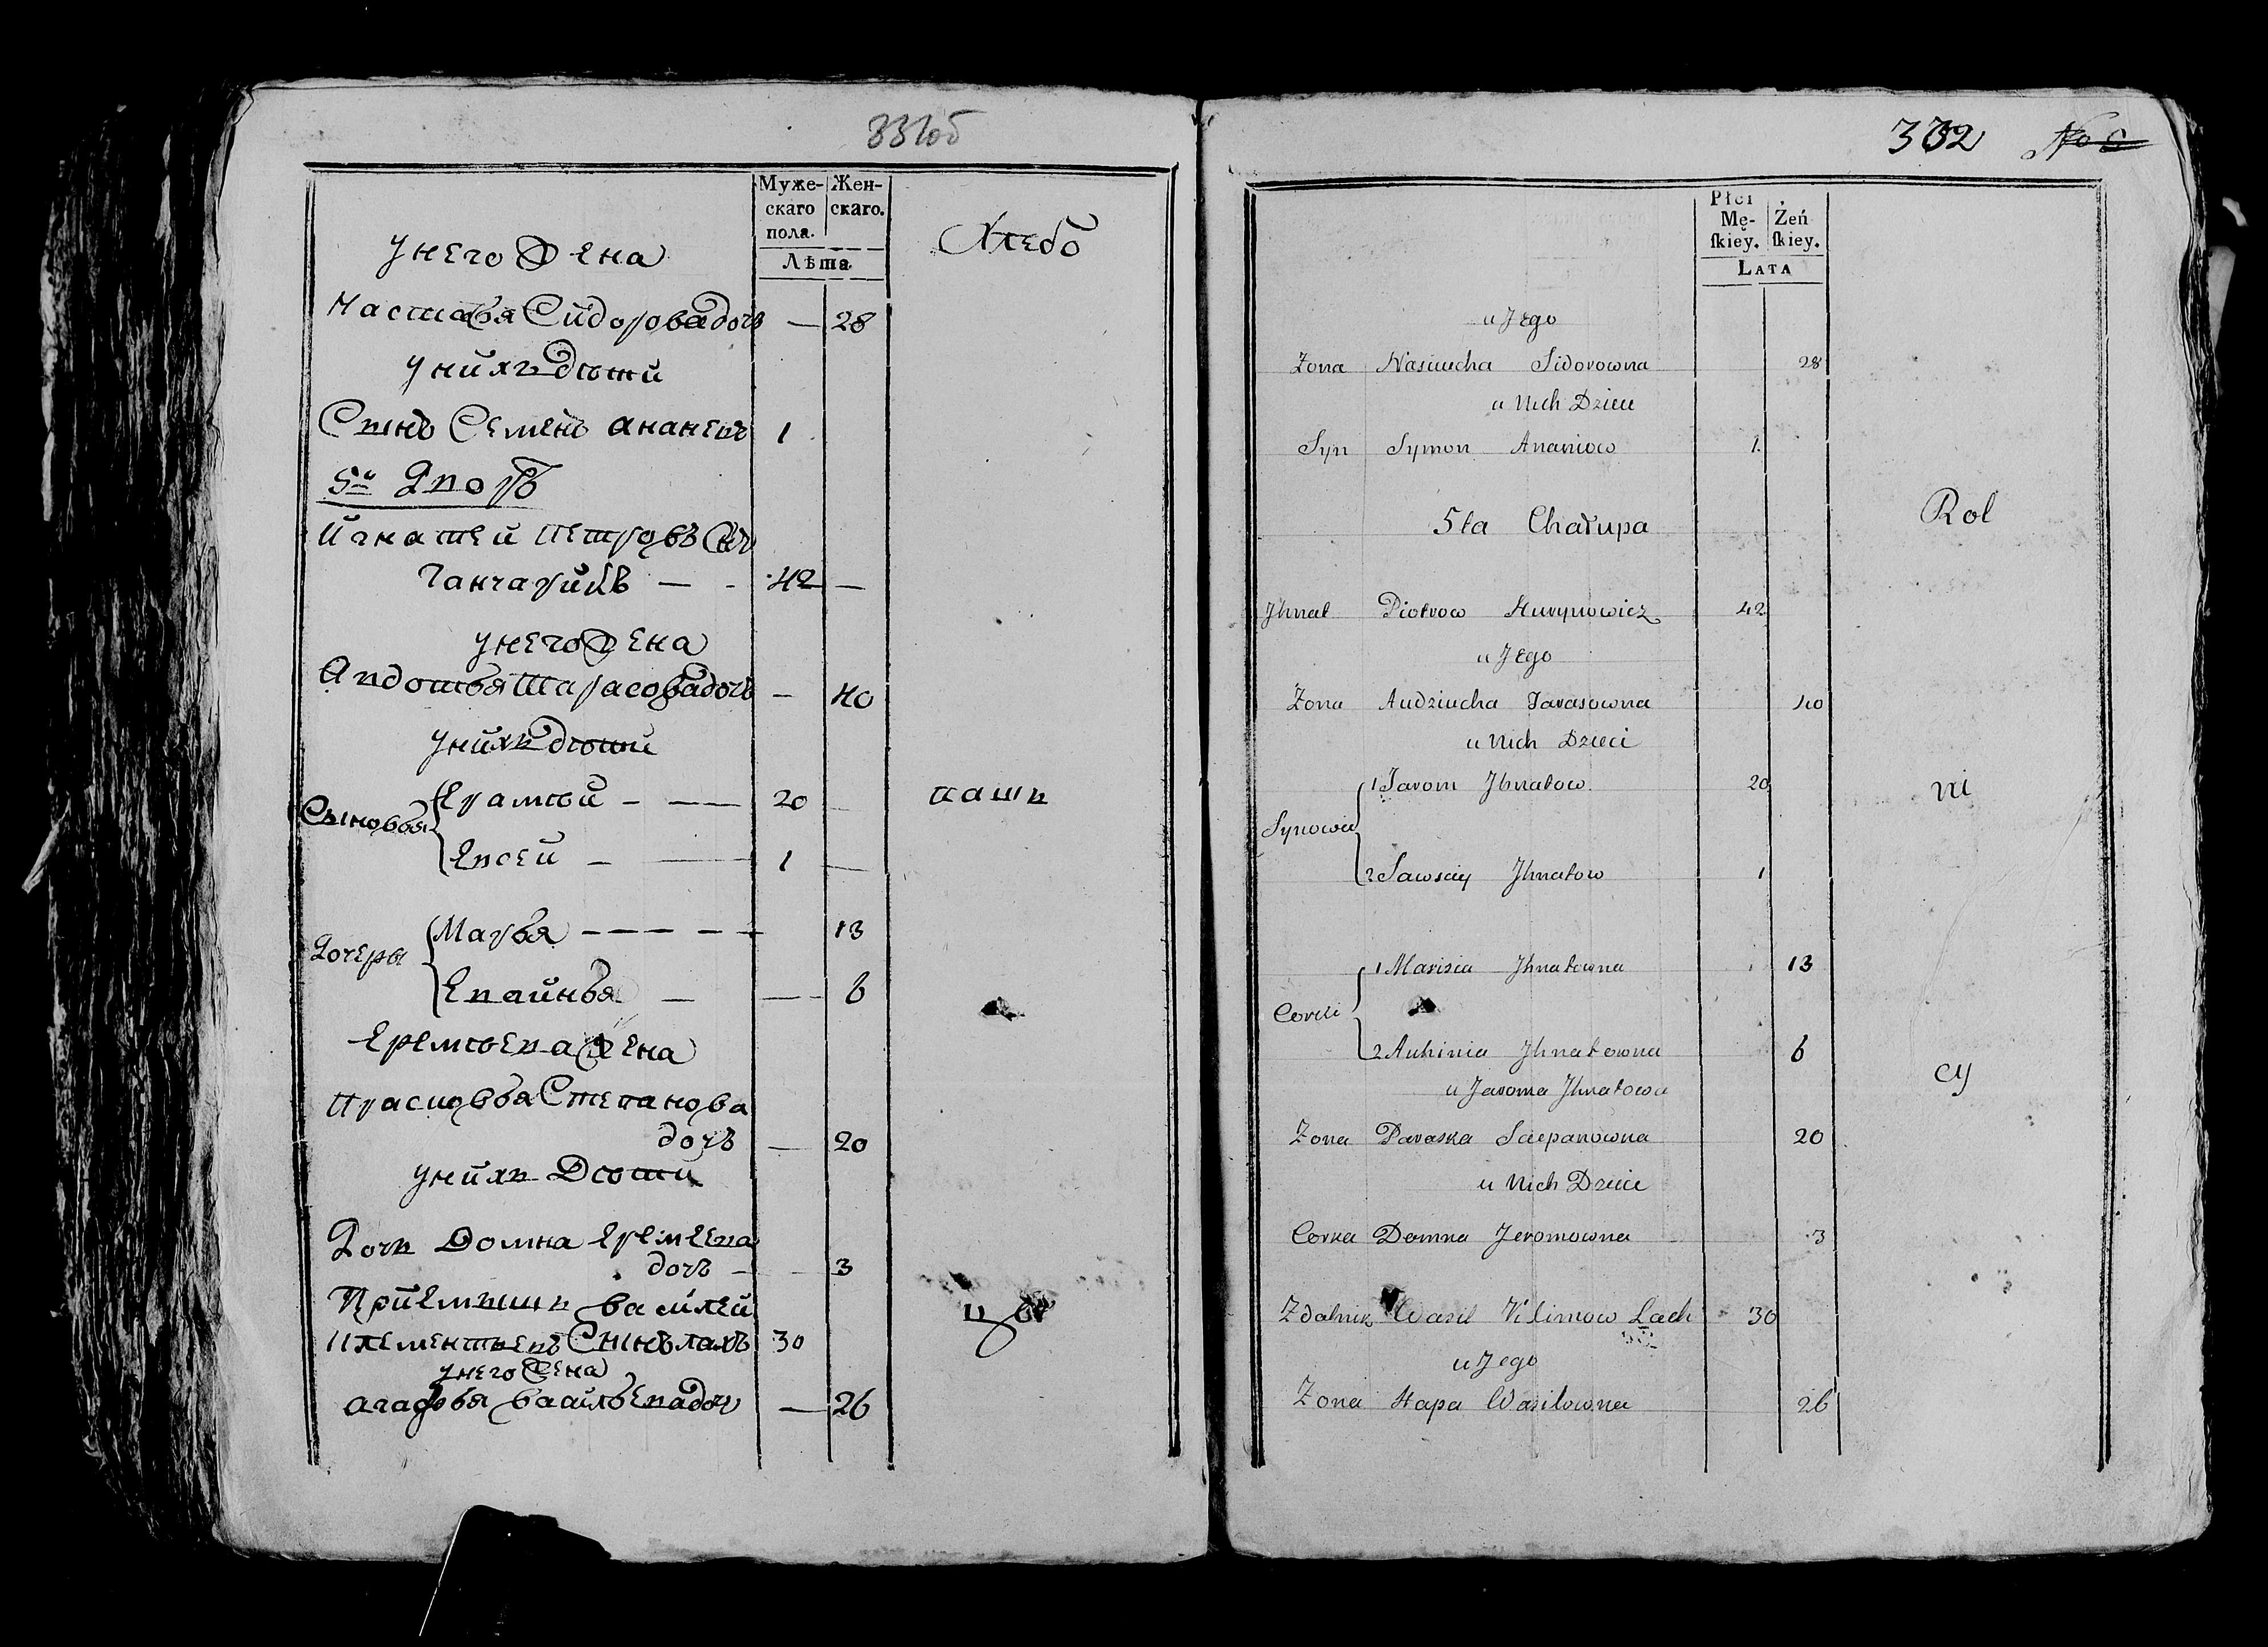 331об
Муже-
скаго
пола.
Жен-
скаго.
Лѣта
у него Жена
Настасья Сидорова дочь — 28
у нихъ дѣти
Сынъ Семенъ Ананевъ 1
5й Дворъ
Игнатей Петровъ Снъ
Ганчарикъ — - 42 —
у него Жена
Авдотья Тарасова дочь — 40
у нихъ дѣти
Сыновья
Ерамѣй - — — 20 —
Евсей — — 1 —
Дочеры
Марья — — — — — 13
Евгинья — — 6
Еремѣева Жена
Прасковья Степанова
дочь — 20
у нихъ Дѣти
Дочь Домна Еремѣева
дочь — — 3
Приемышъ Василей
Клементьевъ Сынъ Лахъ 30
у него Жена
Агафья Васильева дочь — 26
Хлебо
паш
цы
332 No 6
Płci
Mę-
ſkiey.
Żeń
ſkiey.
LATA
u Jego
Zona Nasciucha Sidorowna 28
u Nich Dzieci
Syn Symon Ananiow 1.
5ta Chałupa
Jhnat Piotrow Hurynowicz 42
u Jego
Zona Audziucha Tarasowna 40
u Nich Dzieci
Synowie
1 Jarom Jhnatow 20
2 Sawsciey Jhnatow 1
Corki
1 Marisia Jhnatowna 13
2 Auhinia Jhnatowna 6
u Jaroma Jhnatowa
Zona Paraska Sciepanowna 20
u Nich Dzieci
Corka Domna Jeromowna 3
Zdolnik Wasil Klimow Lach 30
u Jego
Zona Hapa Wasilowna 26
Rol
ni
cy